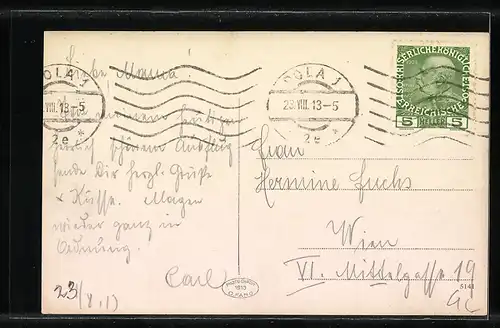 Liebe Mama!
Von meinem heutigen
herrlich schönen Ausflug
sende Dir herzl. Grüße
& Küsse. Magen
wieder ganz in
Ordnung.
Carl
23/8 13
POLA 1
23.VIII.13-5
2e
*
POLA 1
23.VIII.13-5
2e
*
KAISERLICHE KÖNIGLICHE
ÖSTERREICHISCHE
5 HELLER 5
Frau
Hermine Fuchs
Wien
VI. Mittelgasse 19
5141
1913
G. FANO